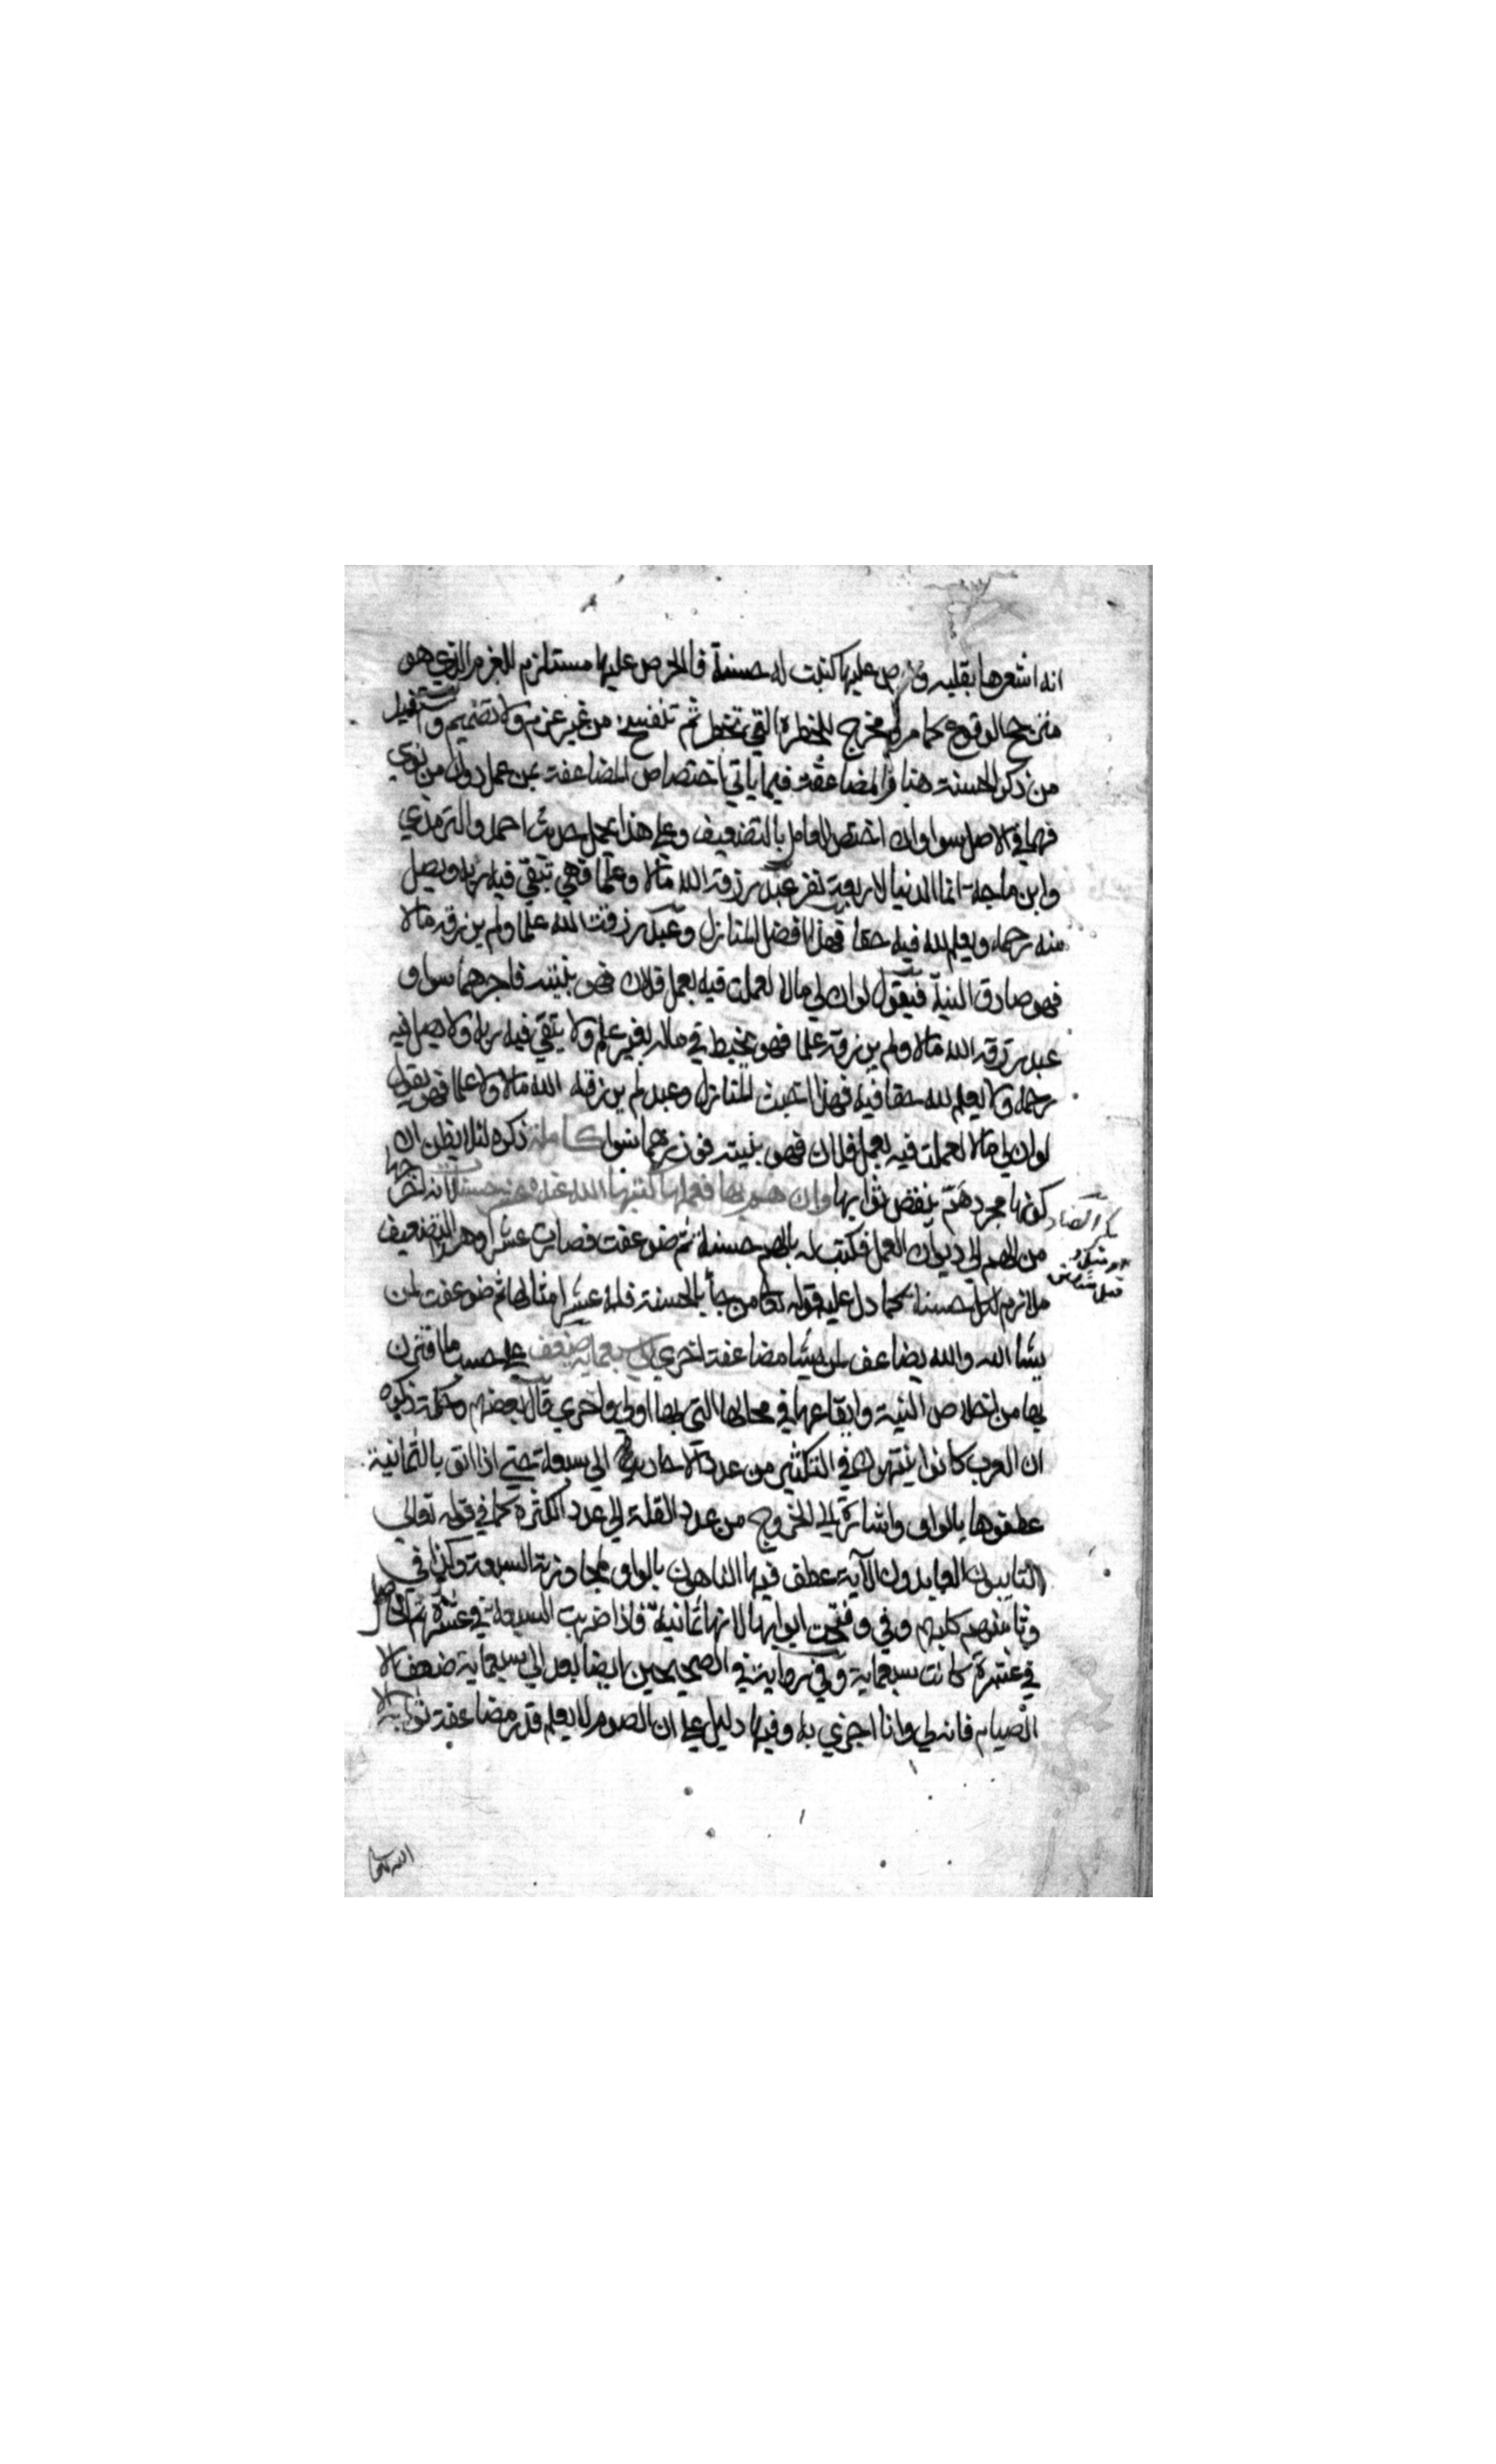 انه اشعرها بقلبه وحرص عليها كتبت له حسنة فالحرص عليها مستلزم للعزم الذي هو
من ذكر الحسنة هنا والمضاعفة فيما ياتي باختصاص المضاعفة بمن عمل دون من نوي
فهما في الاصل سوا وان اختص العامل بالتضعيف وعلي هذا يحمل حديث احمد والترمذي
وابن ماجه انما الدنيا لاربعة نفر عبد رزقه الله مالا وعلما فهي تتقي فيه ربه ويصل
منه رحمه ويعلم لله فيه حقا فهذا افضل المنازل وعبد رزقه الله علما ولم يرزقه مالا
فهو صادق النية فيقول لو ان لي مالا لعملت فيه بعمل فلان فهو بنيته فاجرهما سوا و
عبد رزقه الله مالا ولم يرزقه علما فهو يخبط في ماله بغير علم ولا يتقي فيه ربه ولا يصل فيه
رحمه ولا يعلم لله حقا فيه فهذا اخبث المنازل وعبد لم يرزقه الله مالا ولا علما فهو يقول
لو ان لي مالا لعملت فيه بعمل فلان فهو بنيته فوزرهما سوا كاملة ذكره لئلا يظن ان
كونها مجرد هم ينقص ثوابها وان هم بها فعملها كتبها الله عنده عشر حسنات لانه اخرجها
من الهم الي ديوان العمل فكتب له بالهم حسنة ثم ضوعفت فصارت عشرا وهذا التضعيف
ملازم لكل حسنة كما دل عليه قوله تعا من جا بالحسنة فله عشر امثالها ثم ضوعفت لمن
يشا الله والله يضاعف لمن يشا مضاعفة اخري الي سبعماية ضعف علي حسب ما اقترن
بها من اخلاص النية وايقاعها في محالها التي بها اولي واحري قال بعضهم وحكمة ذكره
ان العرب كانوا ينتهون في التكثير من عدد الاحاد الي سبعة حتي اذا اتوا بالثمانية
عطفوها بالواو واشارة الي الخروج من عدد القلة الي عدد الكثرة كما في قوله تعالي
التايبون العابدون الآية عطف فيها الناهون بالواو لمجاوزته السبعة وكذا في
وثامنهم كلبهم وفي وفتحت ابوابها لانها ثمانية فاذا ضربت السبعة في عشرة ثم الحاصل
في عشرة كانت سبعماية وفي رواية في الصحيحين ايضا بعد الي سبعماية ضعف الا
الصيام فانه لي وانا اجزي به وفيها دليل علي ان الصوم لا يعلم قدر مضاعفة ثوابه الا